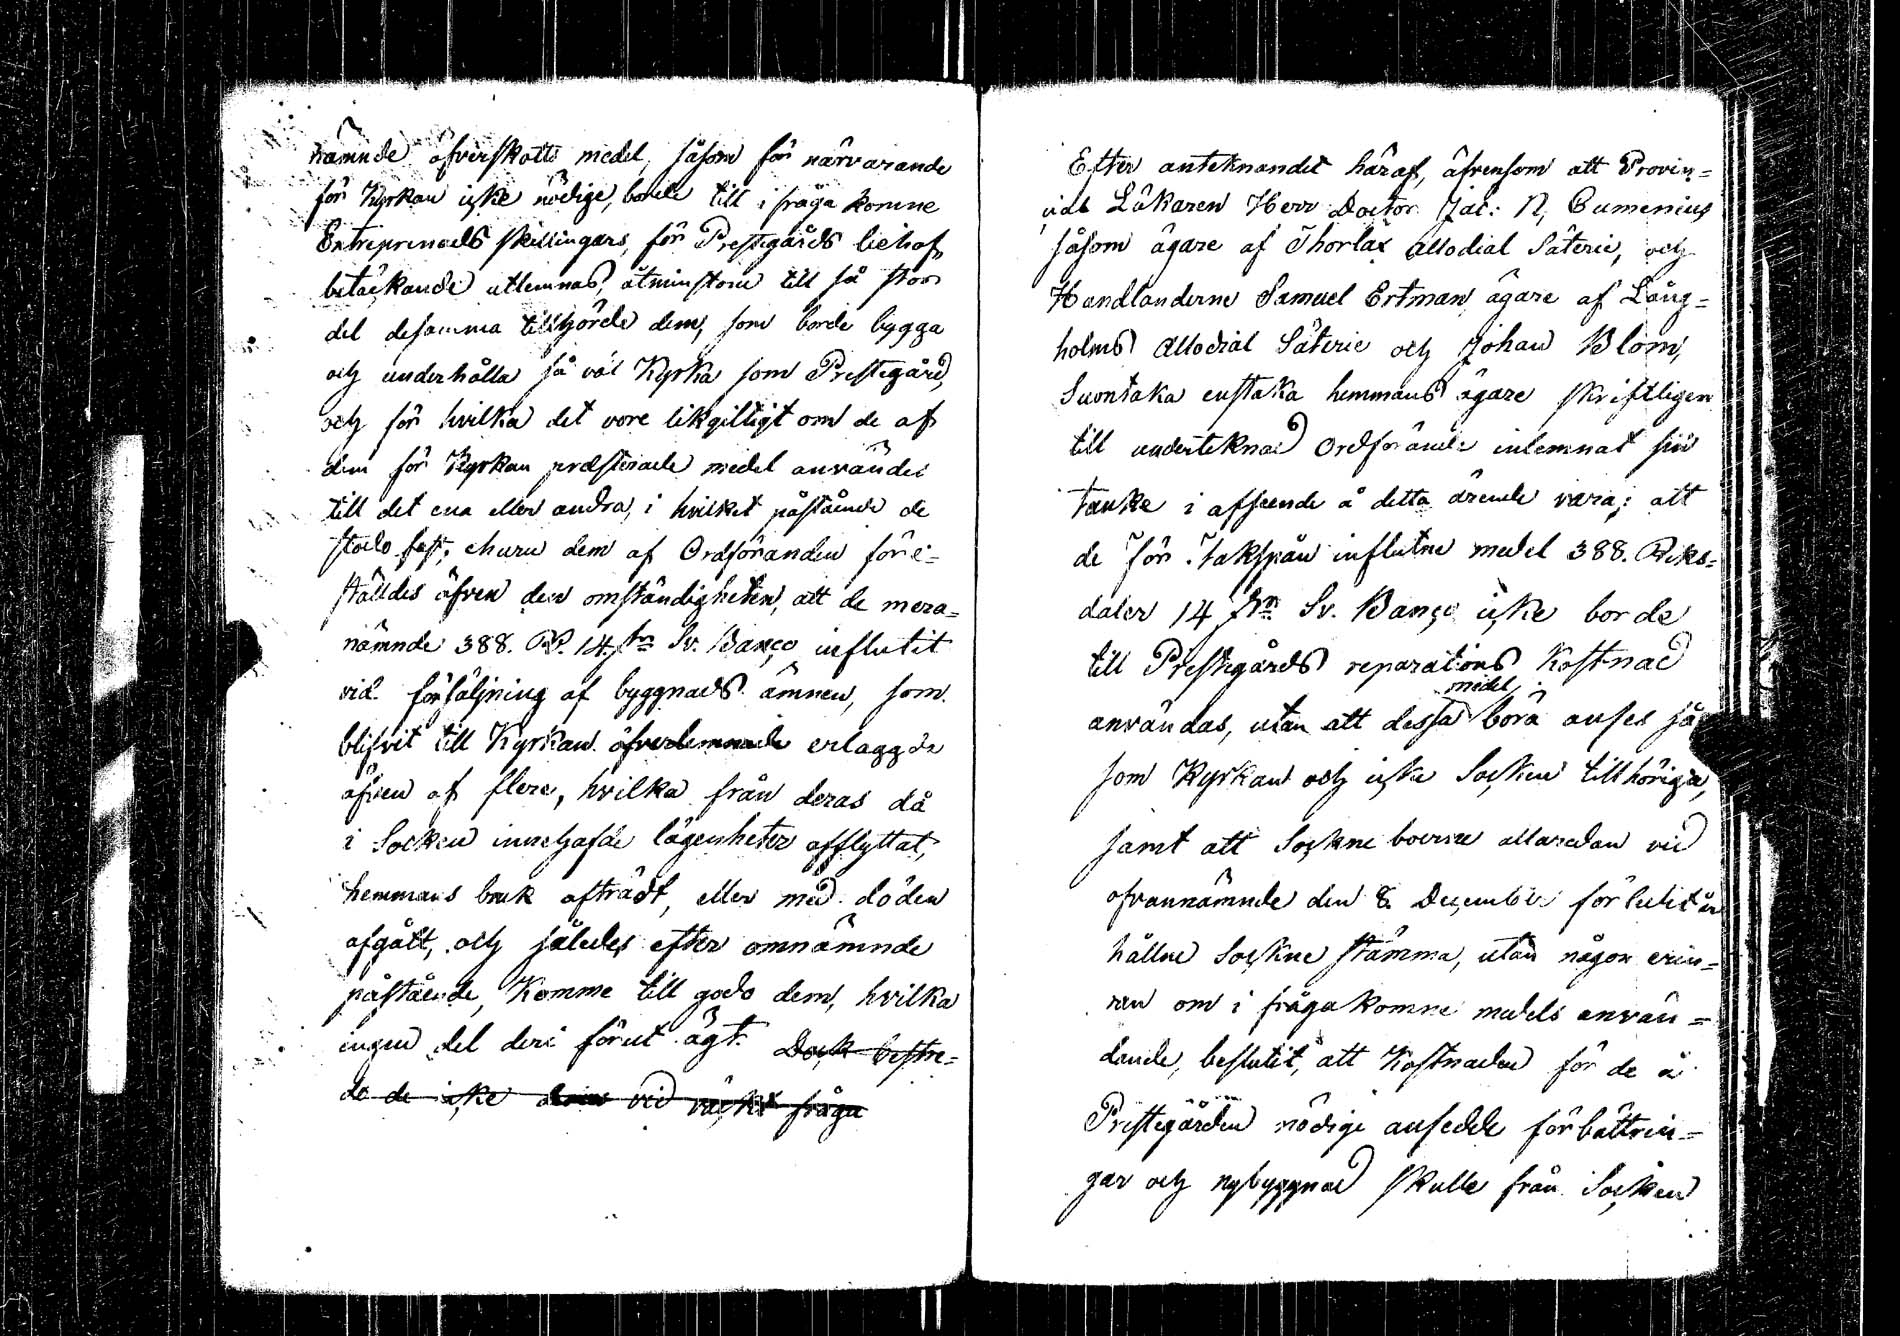 nämnde öfverskotts medel, såsom för närvarande
för Kyrkan icke nödige, borde till i fråga komne
Entreprenads skillingars, för Prestegårds behof,
betäckande utlemnas, åtminstone till så stor
del desamma tillhörde dem, som borde bygga
och underhålla så väl Kyrka som Prestegård,
och för hvilka det vore likgiltigt om de af
dem för Kyrkan præsterade medel användes
till det ena eller andra, i hvilket påstående de
stodo fast, ehuru dem af Ordföranden före-
ställdes äfven den omständigheten, att de mera-
nämnde 388. Rd. 14. sn Sv. Banco influtit
vid försäljning af byggnads ämnen, som
blifvit till Kyrkan öfverlemnade erlaggde
äfven af flere, hvilka från deras då
i Socken innehafde lägenheter afflyttat,
hemmans bruk afträdt, eller med döden
afgått, och således efter omnämnde
påstående, Komme till godo dem, hvilka
ingen del deri förut ägt. Dock bestre-
do de icke vid väckt fråga
Efter antecknandet häraf, äfvensom att Provin-
cial Läkaren Herr Doctor Jac: N. Cumenius
såsom ägare af Thorlax Allodial Säterie, och
Handlanderne Samuel Ertman ägare af Lång-
holms Allodial Säterie och Johan Blom,
Suontaka enstaka hemmans ägare skriftligen
till undertecknad Ordförande inlemnat sin
tanke i afseende å detta ärende vara; att
de för Takspån influtne medel 388. Riks-
daler 14 sn Sv. Banco icke borde
till Prestegårds reparations Kostnad
användas, utan att dessa medel böra anses så
som Kyrkan och icke Socken tillhöriga,
samt att Sockne boerne allaredan vid
ofvannämnde den 8. December förledit år
hållne Sockne stämma, utan någon erin-
ran om i fråga komne medels använ-
dande, beslutit, att Kostnaden för de å
Prestegården nödige ansedde förbättrin-
gar och nybyggnad skulle från Socken